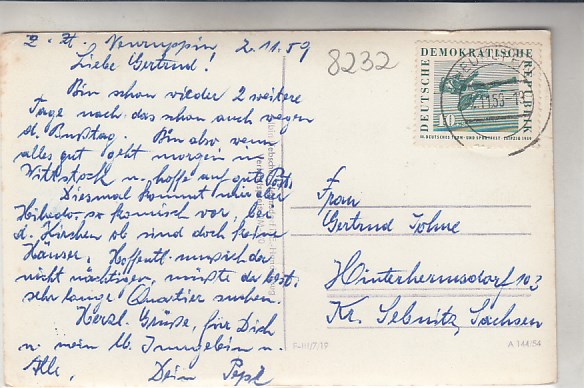 z. Zt. Neuruppin, 2.11.59
Liebe Gertrud!
Bin schon wieder 2 weitere
Tage nach, das schon auch wegen
d. Bußtag. Bin also, wenn
alles gut geht morgen in
Wittstock u. hoffe auf gute Post.
Diesmal kommt mir aber
so komisch vor, bei
d. Kirchen ob sind doch keine
Häuser. Hoffentl. muß ich da
nicht nächtigen, müßte da best.
sehr lange Quartier suchen.
Herzl. Grüße, für Dich
u. mein lb. u.
Alle, Dein
8232
DEUTSCHE DEMOKRATISCHE REPUBLIK
10
III. DEUTSCHES TURN- UND SPORTFEST · LEIPZIG 1959
Frau
Gertrud
Hinterhermsdorf 103
Kr. Sebnitz, Sachsen
A 144/54